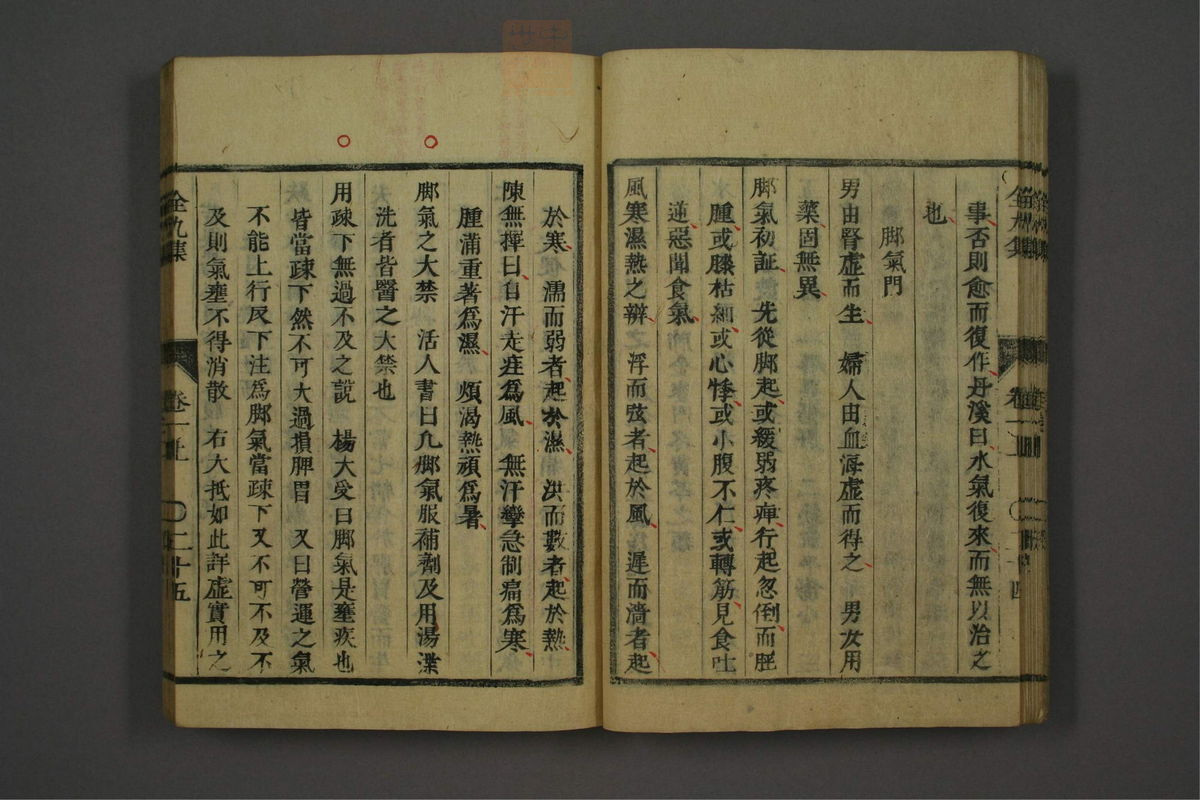 事否則愈而復作丹溪曰水氣復來而無以治之
也
脚氣門
男由腎虛而生 婦人由血海虛而得之 男女用
藥固無異
脚氣初証 先從脚起或緩弱疼痺行起忽倒而脛
腫或膝枯細或心悸或小腹不仁或轉筋見食吐
逆惡聞食氣
風寒濕熱之辯 浮而弦者起於風 遲而濇者起
於寒 濡而弱者起於濕 洪而數者起於熱
陳無擇曰自汗走疰為風 無汗攣急制痛為寒
腫滿重著為濕 煩渴熱頑為暑
脚氣之大禁 活人書曰凡脚氣服補劑及用湯渫
洗者皆醫之大禁也
用疎下無過不及之説 楊大受曰脚氣是壅疾也
皆當疎下然不可大過損脾胃 又曰營運之氣
不能上行反下注為脚氣當疎下又不可不及不
及則氣壅不得消散 右大抵如此詳虛實用之
全九集 卷一上 二十五